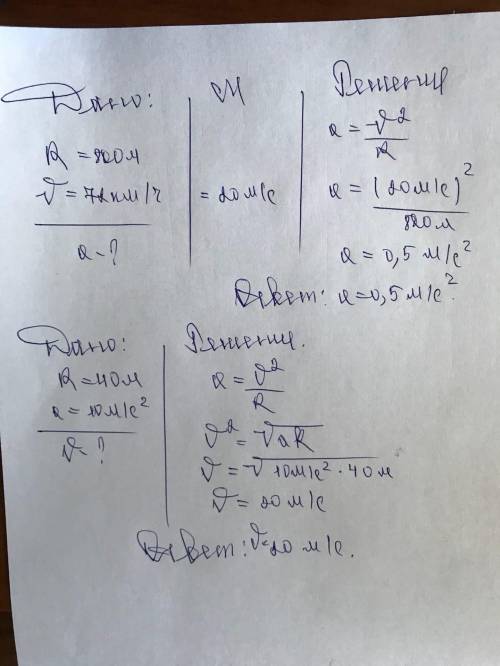 Дано:
R = 800м
v = 72км/ч
a - ?
СИ
= 20м/с
Решение
a = v²/R
a = (20м/с)²/800м
a = 0,5 м/с²
Ответ: a = 0,5 м/с².
Дано:
R = 40м
a = 10м/с²
v - ?
Решение.
a = v²/R
v² = √aR
v = √10м/с² · 40м
v = 20м/с
Ответ: v = 20 м/с.